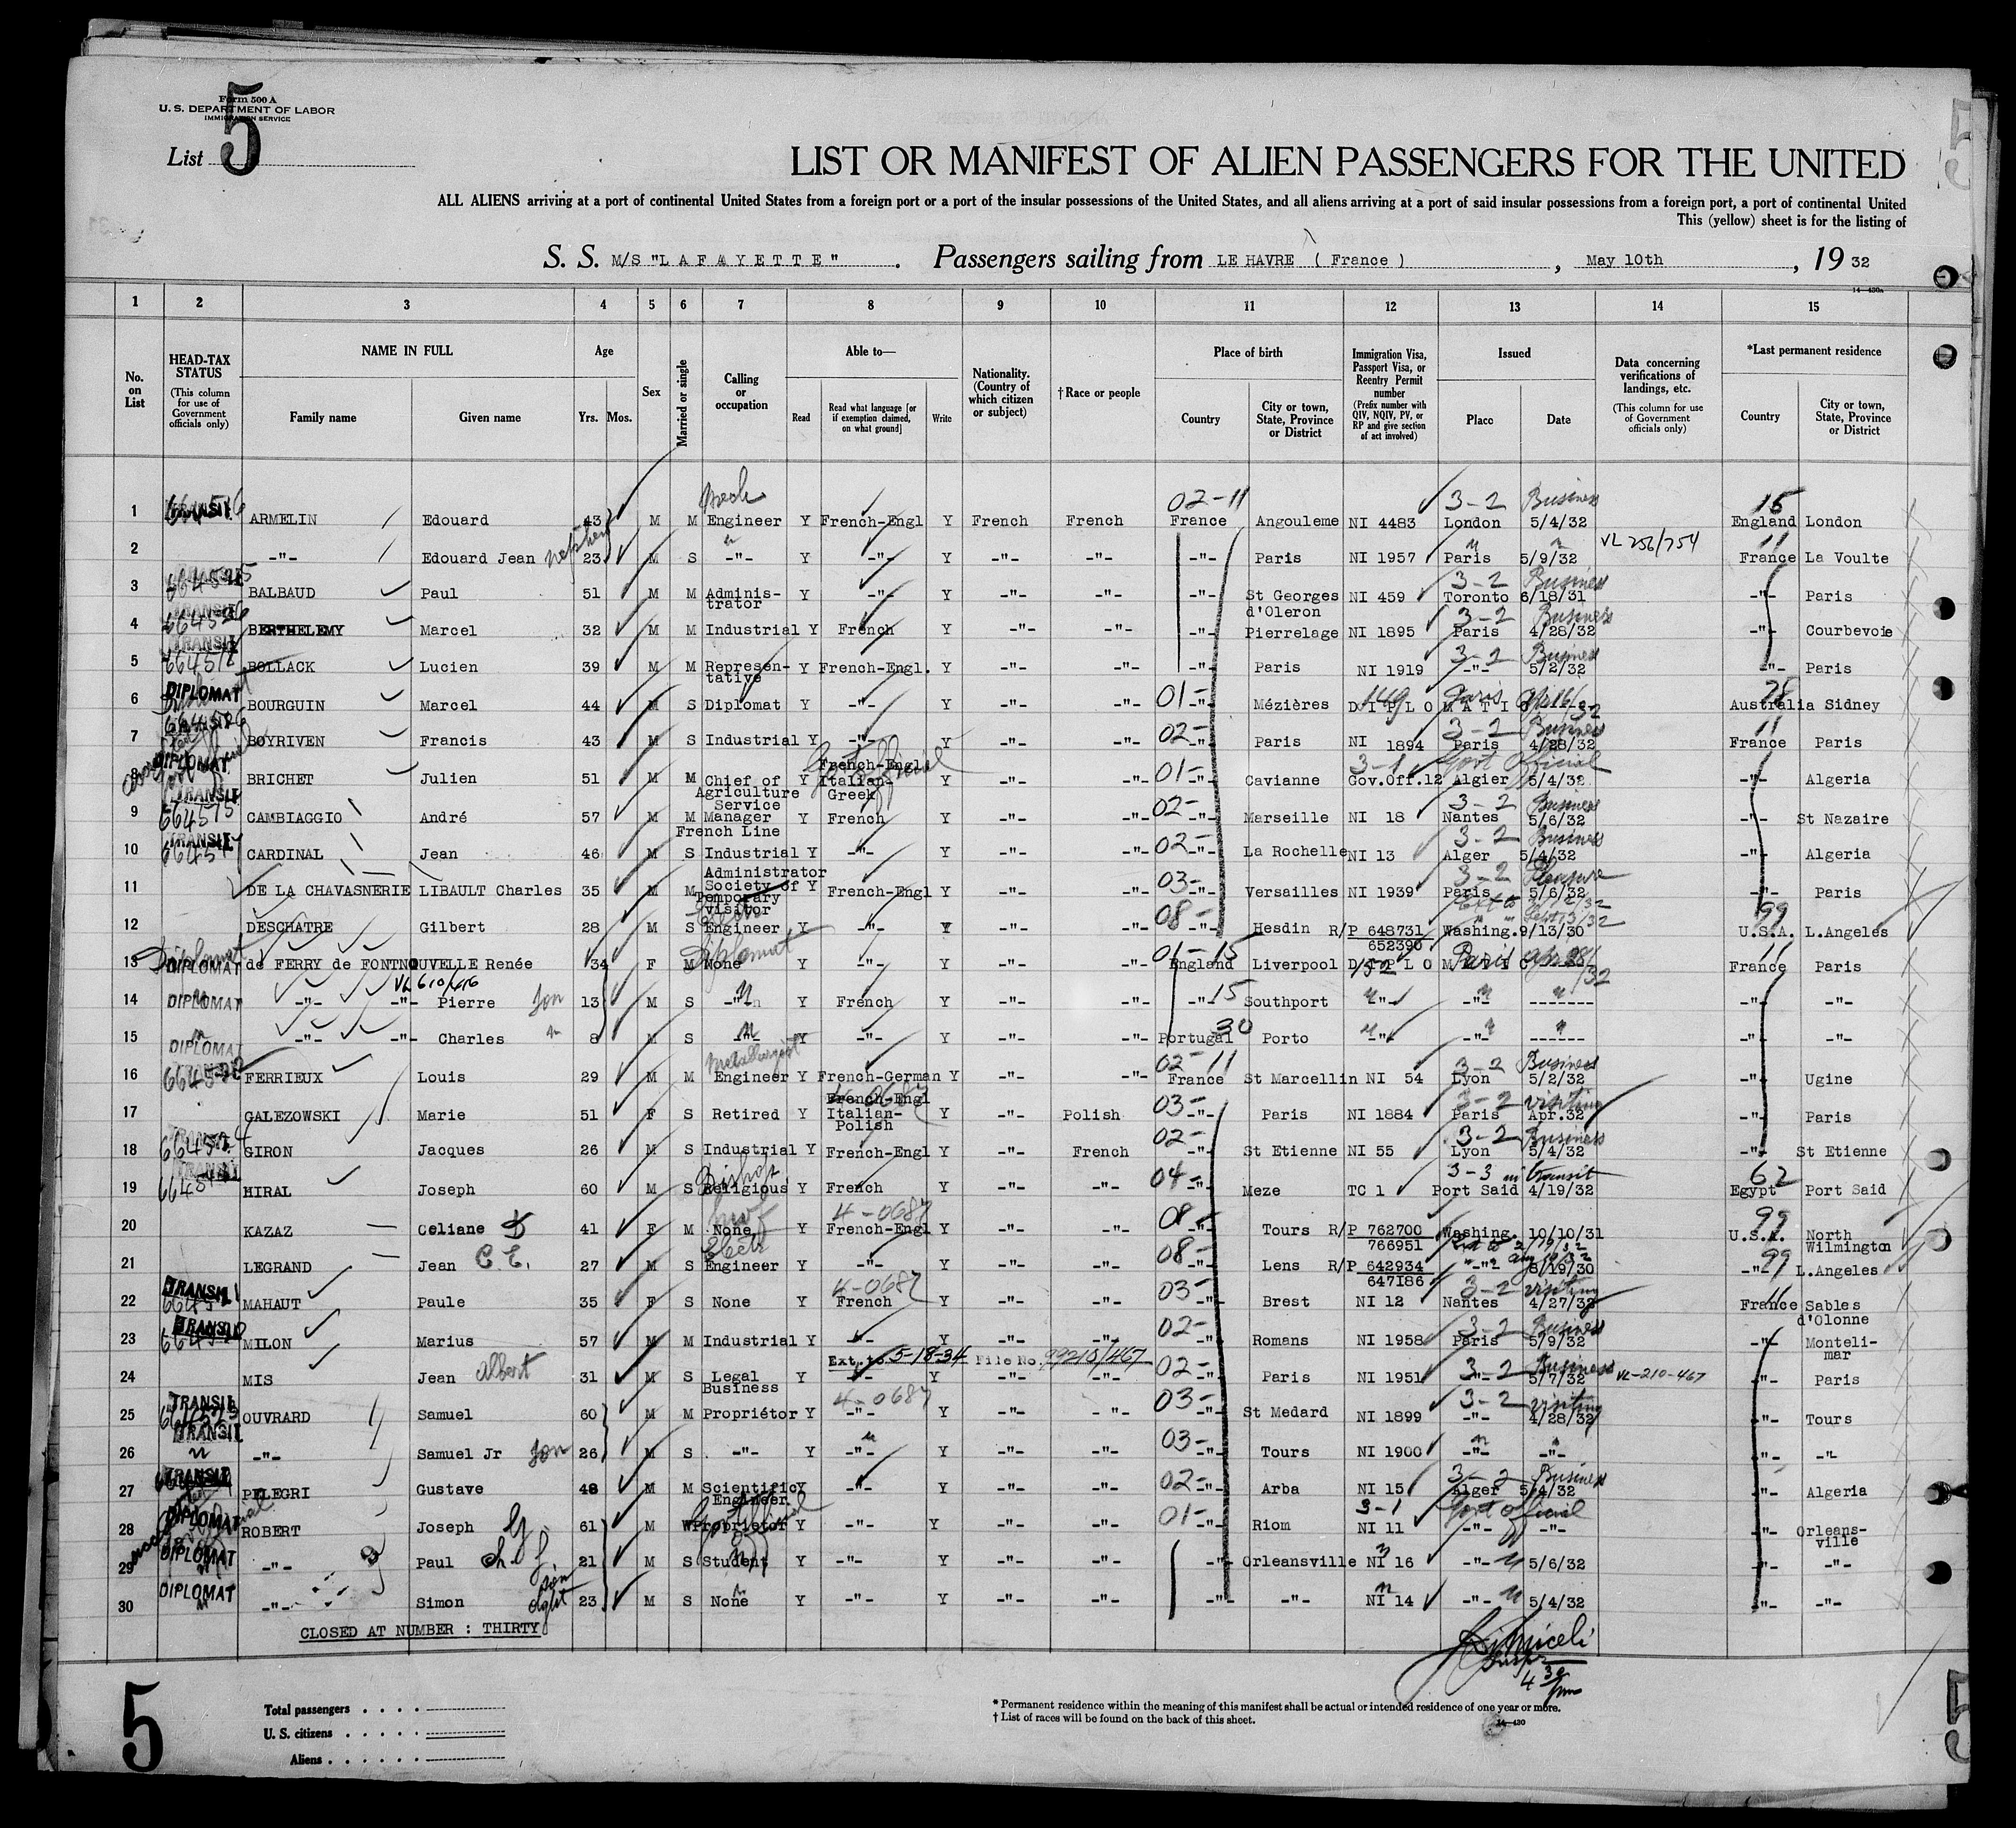 Form 500 A
U. S. DEPARTMENT OF LABOR
IMMIGRATION SERVICE
List 5
LIST OR MANIFEST OF ALIEN PASSENGERS FOR THE UNITED
ALL ALIENS arriving at a port of continental United States from a foreign port or a port of the insular possessions of the United States, and all aliens arriving at a port of said insular possessions from a foreign port, a port of continental United
This (yellow) sheet is for the listing of
S. S. M/S "LAFAYETTE" . Passengers sailing from LE HAVRE ( France ) , May 10th , 19 32
14—430A
1 2 3 4 5 6 7 8 9 10 11 12 13 14 15
No. on List
HEAD-TAX STATUS (This column for use of Government officials only)
NAME IN FULL Family name Given name
Age Yrs. Mos.
Sex
Married or single
Calling or occupation
Able to— Read Read what language [or if exemption claimed, on what ground] Write
Nationality. (Country of which citizen or subject)
†Race or people
Place of birth Country City or town, State, Province or District
Immigration Visa, Passport Visa, or Reentry Permit number (Prefix number with QIV, NQIV, PV, or RP and give section of act involved)
Issued Place Date
Data concerning verifications of landings, etc. (This column for use of Government officials only)
*Last permanent residence Country City or town, State, Province or District
02-11 3-2 Business 15
1 TRANSIT ARMELIN Edouard 43 M M Engineer Y French-Engl Y French French France Angouleme NI 4483 London 5/4/32 England London
2 -"- Edouard Jean nephew 23 M S -"- Y -"- Y -"- -"- -"- Paris NI 1957 Paris 5/9/32 VL 256/754 11 France La Voulte
3 BALBAUD Paul 51 M M Adminis-trator Y -"- Y -"- -"- -"- St Georges d'Oleron NI 459 3-2 Business Toronto 6/18/31 -"- Paris
4 TRANSIT BERTHELEMY Marcel 32 M M Industrial Y French Y -"- -"- -"- Pierrelage NI 1895 3-2 Business Paris 4/28/32 -"- Courbevoie
5 TRANSIT BOLLACK Lucien 39 M M Represen-tative Y French-Engl. Y -"- -"- -"- Paris NI 1919 3-2 Business -"- 5/2/32 -"- Paris
6 DIPLOMAT BOURGUIN Marcel 44 M S Diplomat Y -"- Y -"- -"- 01- -"- Mézières DIPLOMATIC 149 Paris Australia Sidney
7 BOYRIVEN Francis 43 M S Industrial Y -"- Y -"- -"- 02- -"- Paris NI 1894 3-2 Business Paris 4/28/32 11 France Paris
8 DIPLOMAT BRICHET Julien 51 M M Chief of Agriculture Service Y French-Engl Italian-Greek Y -"- -"- 01- -"- Cavianne 3-1 Gov.Off.12 Govt Official Algier 5/4/32 -"- Algeria
9 TRANSIT 664515 CAMBIAGGIO André 57 M M Manager French Line Y French Y -"- -"- 02- -"- Marseille NI 18 3-2 Business Nantes 5/6/32 -"- St Nazaire
10 TRANSIT CARDINAL Jean 46 M S Industrial Y -"- Y -"- -"- 02- -"- La Rochelle NI 13 3-2 Business Alger 5/4/32 -"- Algeria
11 DE LA CHAVASNERIE LIBAULT Charles 35 M M Administrator Society of Temporary visitor Y French-Engl Y -"- -"- 03- -"- Versailles NI 1939 3-2 Pleasure Paris 5/6/32 -"- Paris
12 DESCHATRE Gilbert 28 M S Engineer Y -"- Y -"- -"- 08- -"- Hesdin R/P 648731 652390 Washing. 9/13/30 99 U.S.A. L.Angeles
13 Diplomat DIPLOMAT de FERRY de FONTNOUVELLE Renée 34 F M None Diplomat Y -"- Y -"- -"- 01-15 England Liverpool DIPLOMATIC 152 Paris 11 France Paris
VL 610/616
14 DIPLOMAT -"- -"- Pierre son 13 M S -"- Y French Y -"- -"- -"- 15 Southport -"- -"- ------- -"- -"-
15 DIPLOMAT -"- -"- Charles 8 M S -"- Y -"- Y -"- -"- 30 Portugal Porto -"- -"- ------ -"- -"-
16 FERRIEUX Louis 29 M M Metallurgist Engineer Y French-German Y -"- -"- 02-11 France St Marcellin NI 54 3-2 Business Lyon 5/2/32 -"- Ugine
17 GALEZOWSKI Marie 51 F S Retired Y French-Engl Italian-Polish Y -"- Polish 03- -"- Paris NI 1884 3-2 visiting Paris Apr.32 -"- Paris
18 GIRON Jacques 26 M S Industrial Y French-Engl Y -"- French 02- -"- St Etienne NI 55 3-2 Business Lyon 5/4/32 -"- St Etienne
19 HIRAL Joseph 60 M S Bishop Religious Y French Y -"- -"- 04- -"- Meze TC 1 3-3 in transit Port Said 4/19/32 62 Egypt Port Said
20 KAZAZ Celiane 41 F M None Y 4-0687 French-Engl Y -"- -"- 08- -"- Tours R/P 762700 766951 Washing. 10/10/31 99 U.S.A. North Wilmington
21 LEGRAND Jean C. E. 27 M S Electr Engineer Y -"- Y -"- -"- 08- -"- Lens R/P 642934 647186 -"- 8/19/30 99 -"- L.Angeles
22 TRANSIT MAHAUT Paule 35 F S None Y 4-0687 French Y -"- -"- 03- -"- Brest NI 12 3-2 visiting Nantes 4/27/32 11 France Sables d'Olonne
23 TRANSIT MILON Marius 57 M M Industrial Y -"- Y -"- -"- 02- -"- Romans NI 1958 3-2 Business Paris 5/9/32 -"- Monteli-mar
Ext. to 5-18-34 File No. 99210/467
24 MIS Jean Albert 31 M S Legal Business Y -"- Y -"- -"- 02- -"- Paris NI 1951 3-2 Business -"- 5/7/32 VL-210-467 -"- Paris
25 TRANSIT OUVRARD Samuel 60 M M Propriétor Y 4-0687 -"- Y -"- -"- 03- -"- St Medard NI 1899 3-2 visiting -"- 4/28/32 -"- Tours
26 TRANSIT -"- Samuel Jr son 26 M S -"- Y -"- Y -"- -"- 03- -"- Tours NI 1900 -"- -"- -"- -"-
27 TRANSIT PELEGRI Gustave 48 M M Scientific Engineer Y -"- Y -"- -"- 02- -"- Arba NI 15 3-2 Business Alger 5/4/32 -"- Algeria
28 DIPLOMAT ROBERT Joseph G 61 M W Proprietor Govt Official Y -"- Y -"- -"- 01- -"- Riom NI 11 3-1 Govt official -"- -"- -"- Orleans-ville
29 DIPLOMAT -"- Paul son 21 M S Student Y -"- Y -"- -"- -"- Orleansville NI 16 -"- 5/6/32 -"- -"-
30 DIPLOMAT -"- Simon dght 23 M S None Y -"- Y -"- -"- -"- -"- NI 14 -"- 5/4/32 -"- -"-
CLOSED AT NUMBER : THIRTY
5
Total passengers . . . .
U. S. citizens . . . . . .
Aliens . . . . . .
* Permanent residence within the meaning of this manifest shall be actual or intended residence of one year or more.
† List of races will be found on the back of this sheet.
14—430